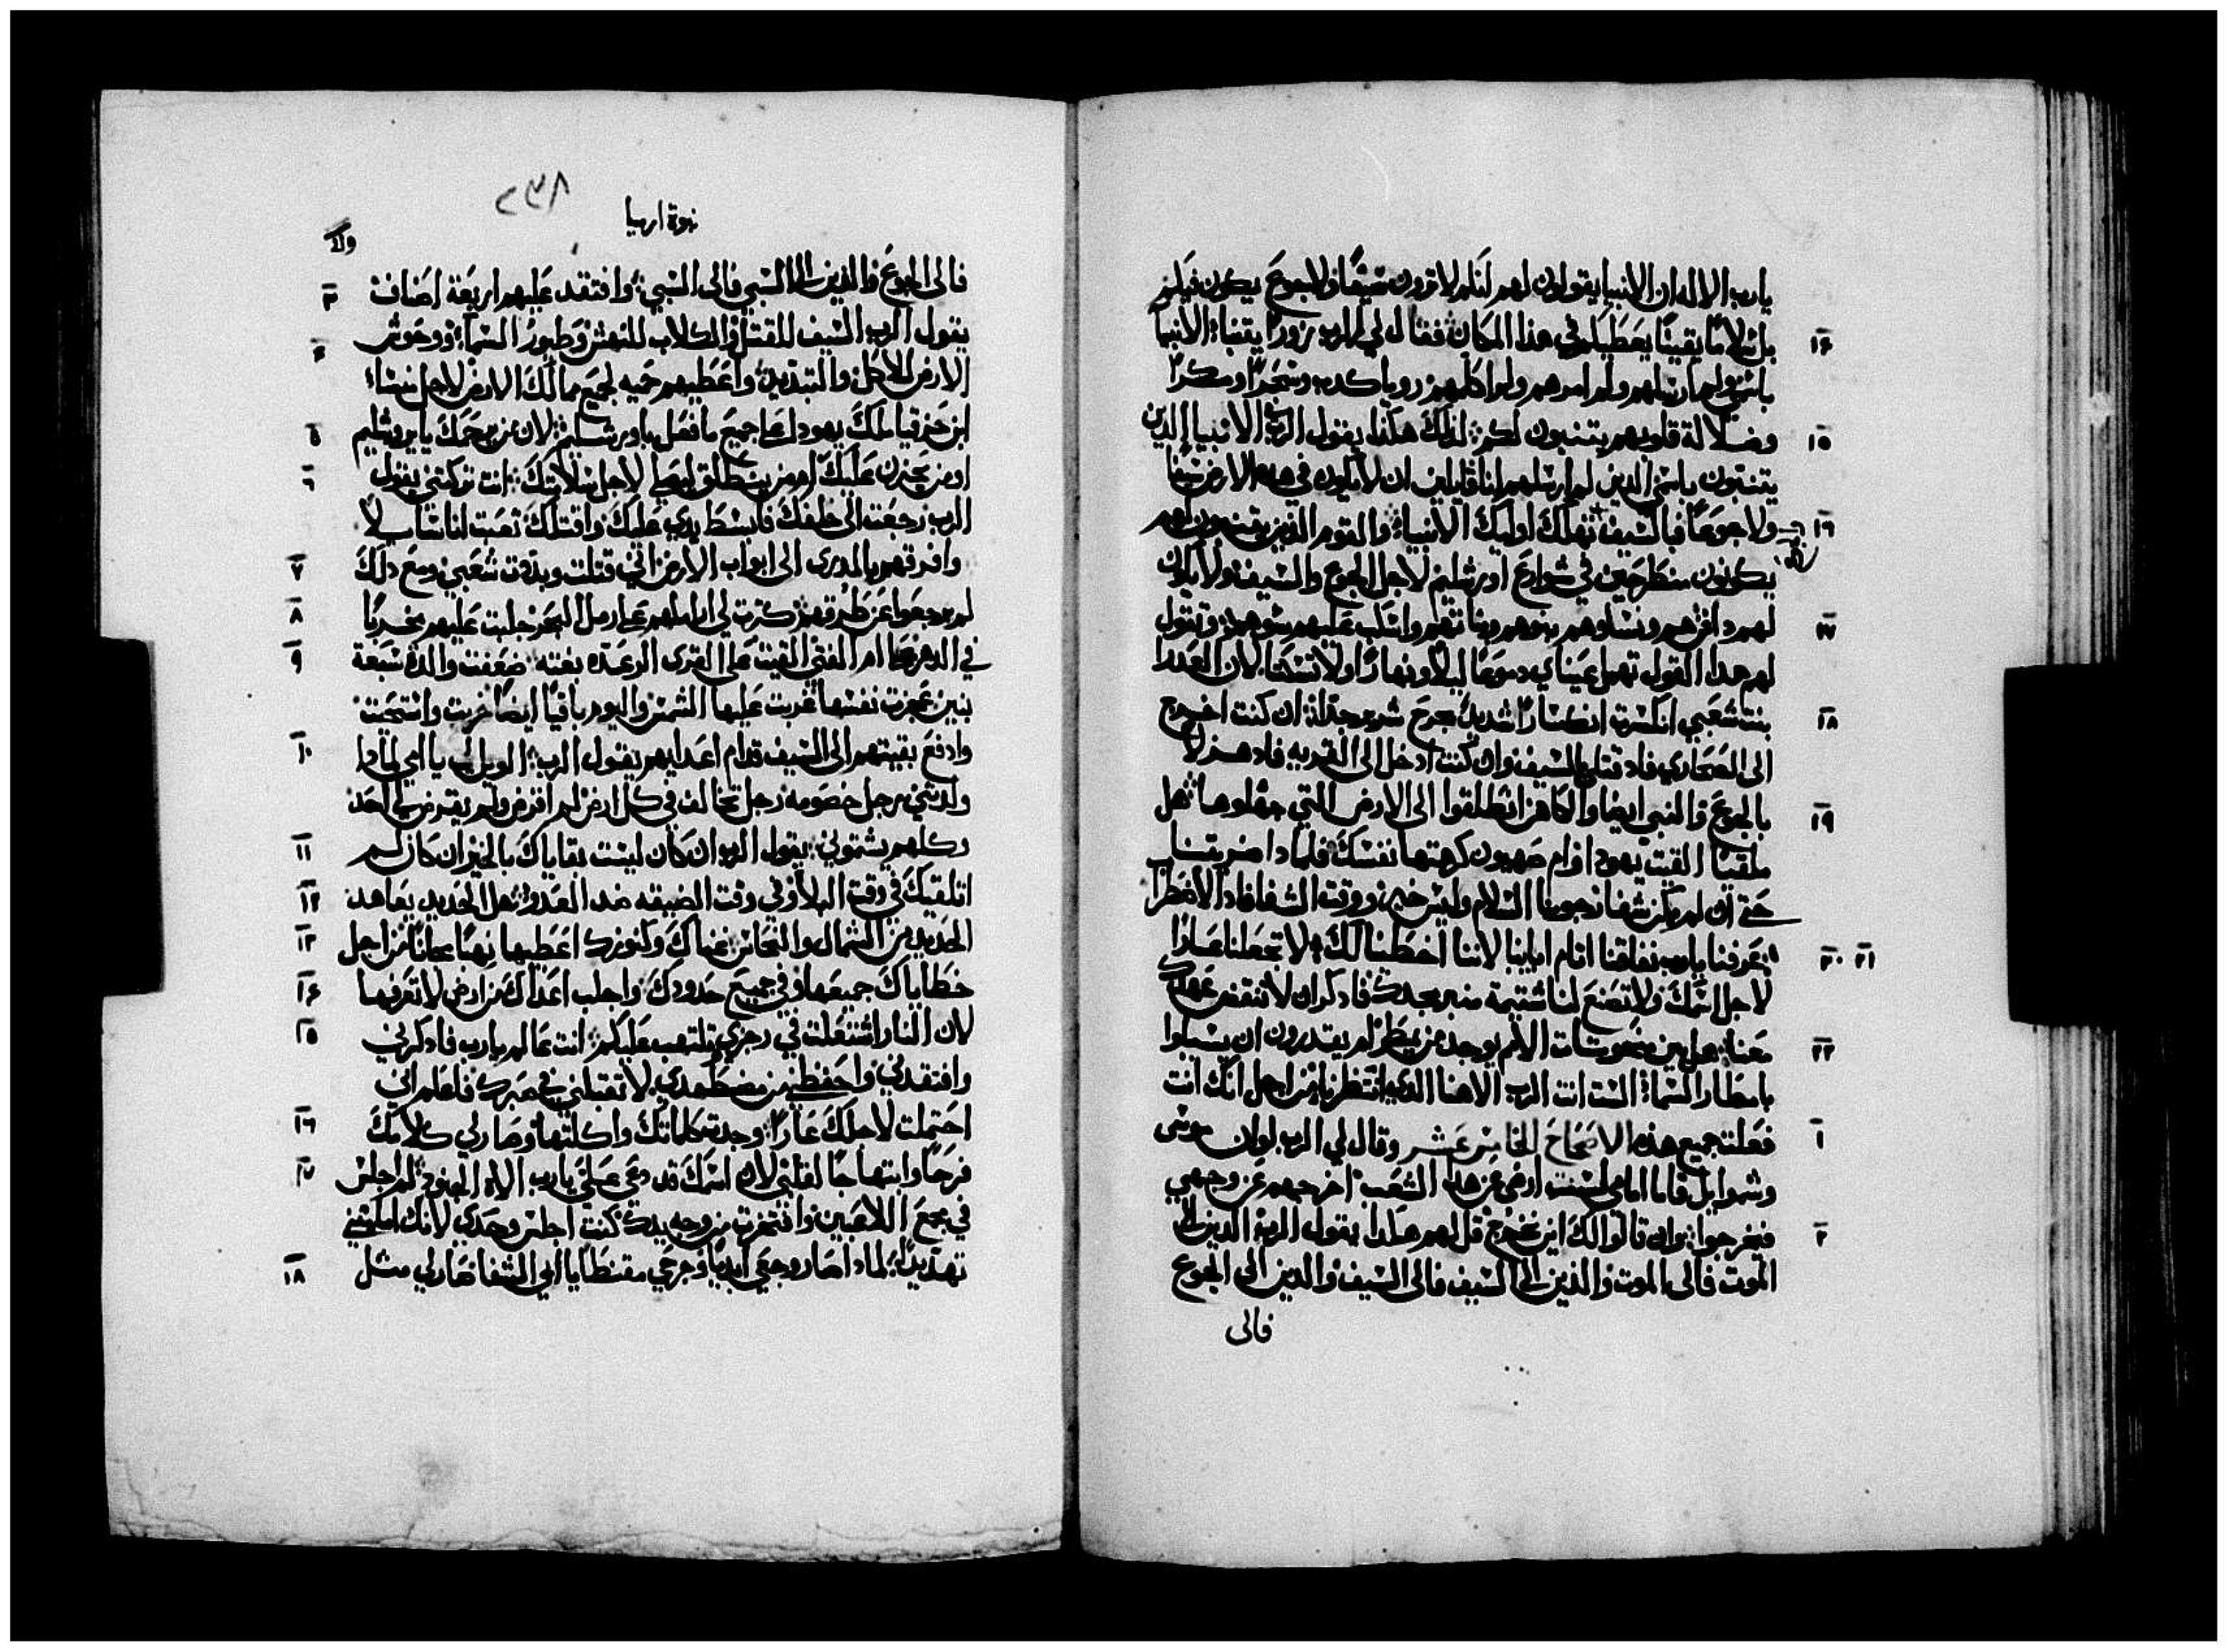 يارب الاله ان الانبيا يقولون لهم لنلم لا ترون سيفًا ولا جوع يكون فيكم
بل سلامًا يقينًا يعطيكم في هذا المكان فقال لي الرب زورًا يتنباء الانبيا
باسمي ولم ارسلهم ولم امرهم ولم اكلمهم رويا كدب وسحرًا ومكرًا
وضلالة قلوبهم يتنبون لكم لذلك هكذا يقول الرب الانبيا الدين
يتنبون باسمي الدين لم ارسلهم انا قايلين ان لا يكون في هذه الارض سيفًا
ولا جوعًا فبالسيف تهلك اوليك الانبيا والقوم الذين يتنبون لهم
يكونون منطرحين في شوارع اورشليم لاجل الجوع والسيف ولا يكون
لهم دافن هم ونساوهم بنوهم وبناتهم واسكب عليهم شرهم وتقول
لهم هدا القول تهمل عيناي دموعًا ليلا ونهارًا ولا تسكتا لان العدرا
بنت شعبي انكسرت انكسارًا شديدًا بجرح شرير جدًا ان كنت اخرج
الى الصحاري فاد قتلى السيف وان كنت ادخل الى القريه فاد هزلا
بالجوع والنبي ايضا والكاهن انطلقوا الى الارض التي جهلوها هل
ملقيًا القيت يهودا ام صهيون كرهتها نفسك فلمادا ضربتنا
حتى ان لم يكن شفا رجونا السلام وليس خير ووقت الشفا فاد الاضطراب
عرفنا يارب نفاقنا اتام اباينا لاننا اخطينا لك لا تجعلنا عارًا
لاجل اسمك ولا تصنع لنا شتيمة منبر مجدك فادكر ان لا تنقض عهدك
معنا هل بين منحوتات الامم يوجد من يمطر ام يقدرون ان يسبلوا
بامطار السما الست انت الرب الاهنا الدي انتظرناه من اجل انك انت
فعلت جميع هذه الاصحاح الخامس عشر وقال لي الرب لو ان موسى
وشموايل قاما امامي ليست ارضى عن هدا الشعب اخرجهم عن وجهي
فيخرجوا وان قالوا لك اين نخرج قل لهم هكدا يقول الرب الدين الى
الموت فالى الموت والذين الى السيف فالى السيف والدين الى الجوع
فالى
نبوة ارميا
٢٣٨
فالى الجوع والذين الى السبي فالى السبي وافتقد عليهم اربعة اصناف
يقول الرب السيف للقتل والكلاب للنهش وطيور السماء ووحوش
الارض للاكل والتبديد واعطيهم حميه لجميع ممالك الارض لاجل منساء
ابن حزقيا ملك يهودا على جميع ما فعل باورشليم لان من يرحمك يا يروشليم
او من يحزن عليك او من ينطلق ليصلي لاجل سلامتك انت تركتني يقول
الرب رجعت الى خلفك فابسط يدي عليك واقتلك تعبت انا سايلا
وافرقهم بالمدرى الى ابواب الارض اني قتلت وبددت شعبي ومع دلك
لم يرجعوا عن طرقهم كترت لي اراملهم على رمل البحر جلبت عليهم مخربًا
في الظهر على ام الفتى القيت على القرى الرعده بغته ضعفت والدة سبعة
بنين عجزت نفسها غربت عليها الشمس واليوم باقيًا ايضا خزيت واستحت
وادفع بقيتهم الى السيف قدام اعدايهم يقول الرب الويل لي يا امي لمادا
ولدتني رجل خصومه رجل تخالف في كل ارض لم اقرض ولم يقرضني احد
وكلهم يشتموني يقول الرب ان كان ليست بقاياك بالخير ان كان لم
اتلقيك في وقت البلا وفي وقت الضيقه ضد العدو هل الحديد يعاهد
الحديد من الشمال والنحاس غناك وكنوزك اعطيها نهبًا مجانًا من اجل
خطاياك جميعها وفي جميع حدودك واجلب اعداك من ارض لا تعرفها
لان النار اشتعلت في رجزي تلتهب عليكم انت عالم يارب فادكرني
وافتقدني واحفظني من مضطهدي لا تقبلني في صبرك فاعلم اني
احتملت لاجلك عارًا وجدت كلماتك واكلتها وصار لي كلامك
فرحًا وابتهاجًا لقلبي لان اسمك قد دعي علي يارب الاله الجنود لم اجلس
في مجمع اللاعبين وافتخرت من وجه يدك كنت اجلس وحدي لانك املاتني
تهديدًا لمادا صار وجعي ابديًا وجرحي مقنطًا يا ابي الشفا صار لي مثل